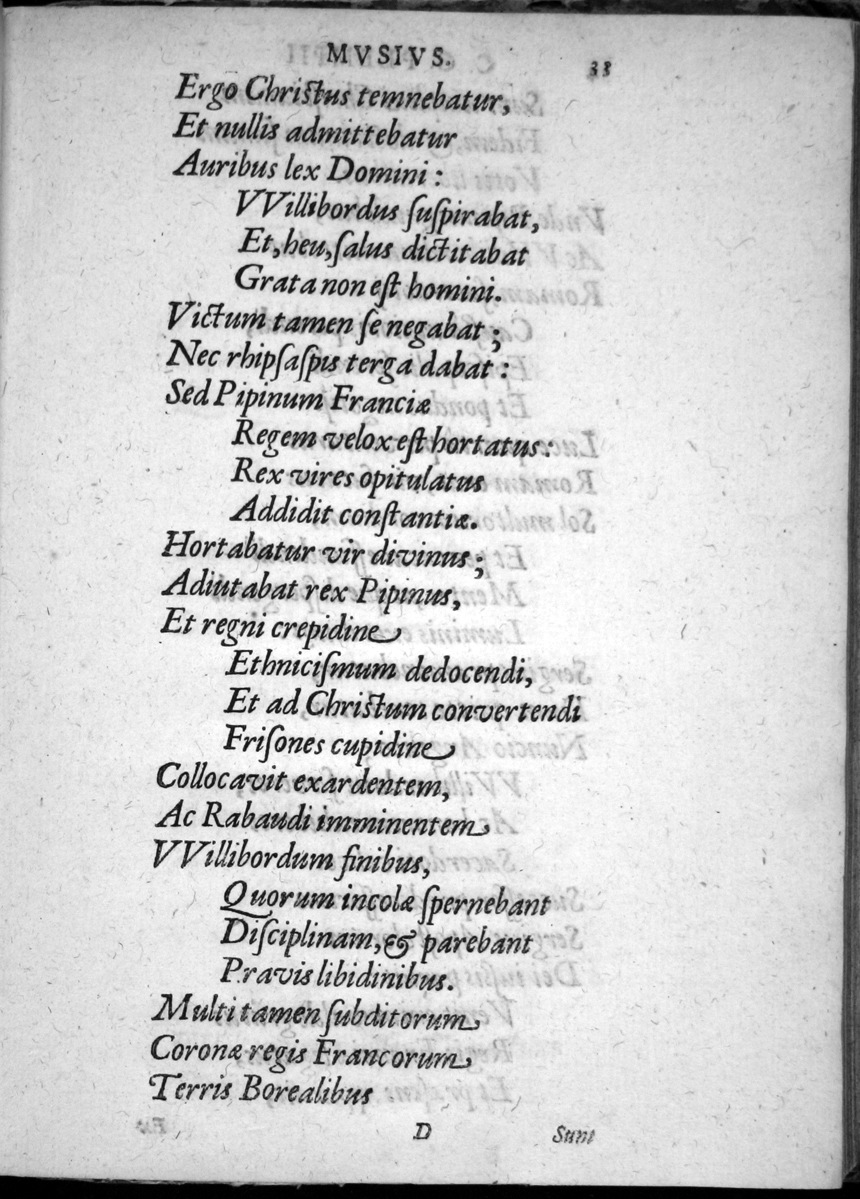 MVSIVS. 33
Ergo Christus temnebatur,
Et nullis admittebatur
Auribus lex Domini:
VVillibordus ſuſpirabat,
Et, heu, ſalus dictitabat
Grata non eſt homini.
Victum tamen ſe negabat;
Nec rhipſaſpis terga dabat:
Sed Pipinum Franciæ
Regem velox eſt hortatus:
Rex vires opitulatus
Addidit conſtantiæ.
Hortabatur vir divinus;
Adiutabat rex Pipinus,
Et regni crepidine
Ethniciſmum dedocendi,
Et ad Christum convertendi
Friſones cupidine
Collocavit exardentem,
Ac Rabaudi imminentem
VVillibordum finibus,
Quorum incolæ ſpernebant
Diſciplinam, & parebant
Pravis libidinibus.
Multi tamen ſubditorum
Coronæ regis Francorum
Terris Borealibus
D Sunt